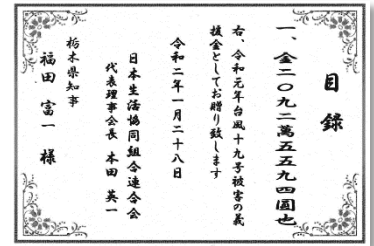 目録
一、金二〇九二萬五五九四圓也
右、令和元年台風十九号被害の義
援金としてお贈り致します
令和二年一月二十八日
日本生活協同組合連合会
代表理事会長 本田 英一
栃木県知事
福田 富一 様